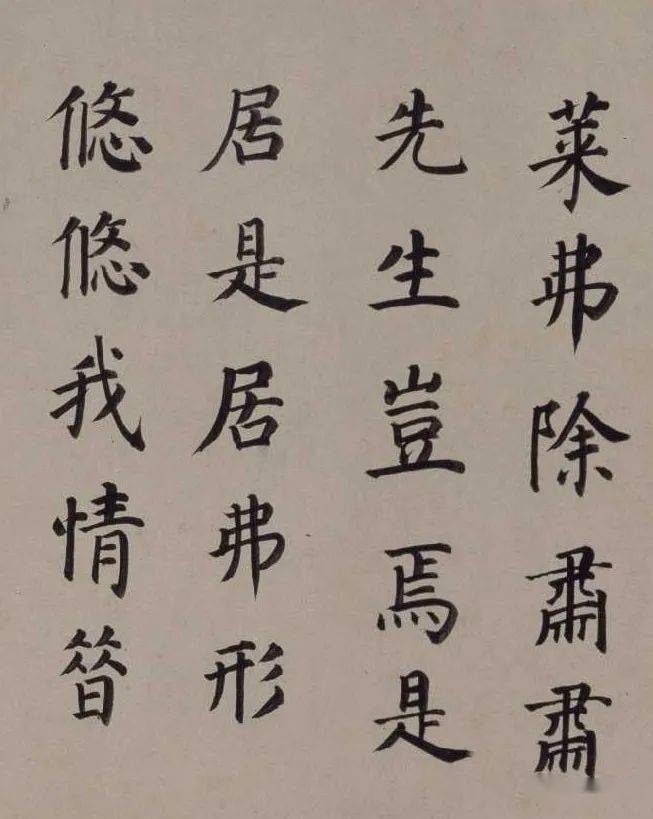 莱弗除肅肅
先生豈焉是
居是居弗形
悠悠我情昝